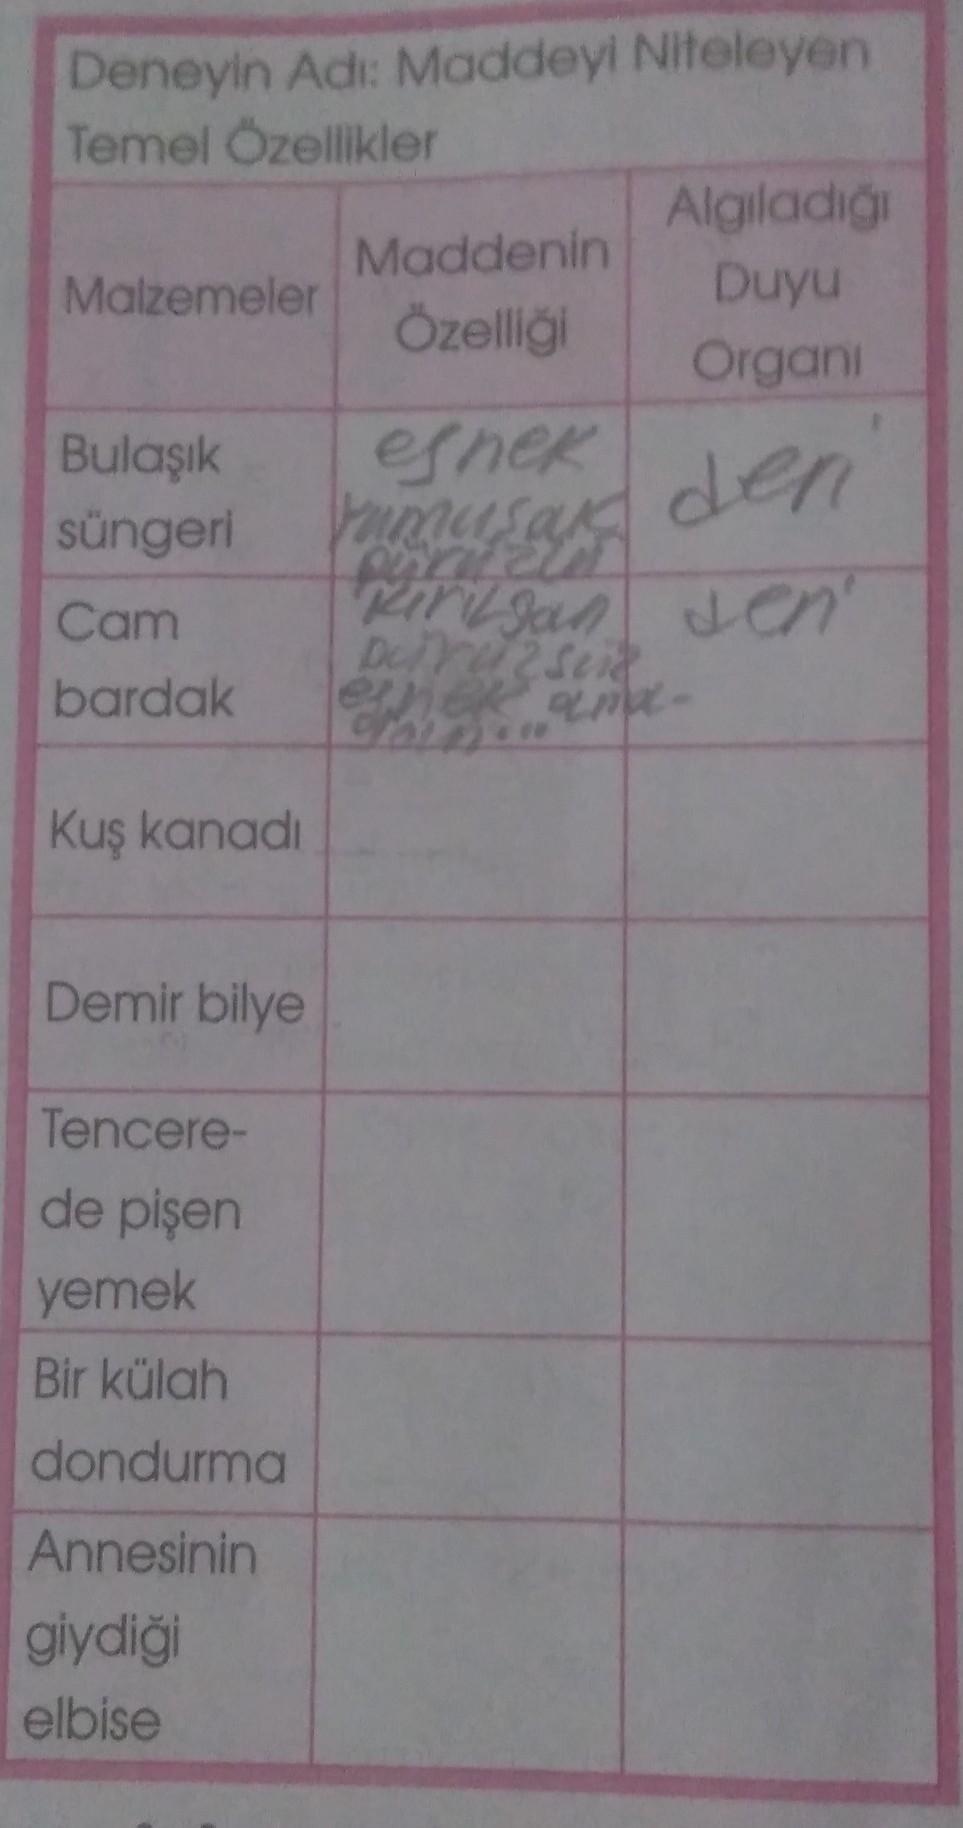 Deneyin Adı: Maddeyi Niteleyen
Temel Özellikler
Malzemeler
Maddenin
Özelliği
Algıladığı
Duyu
Organı
Bulaşık
süngeri
esnek
yumuşak
pürüzlü
deri
Cam
bardak
kırılgan
pürüzsüz
esnek ama-
deri
Kuş kanadı
Demir bilye
Tencere-
de pişen
yemek
Bir külah
dondurma
Annesinin
giydiği
elbise